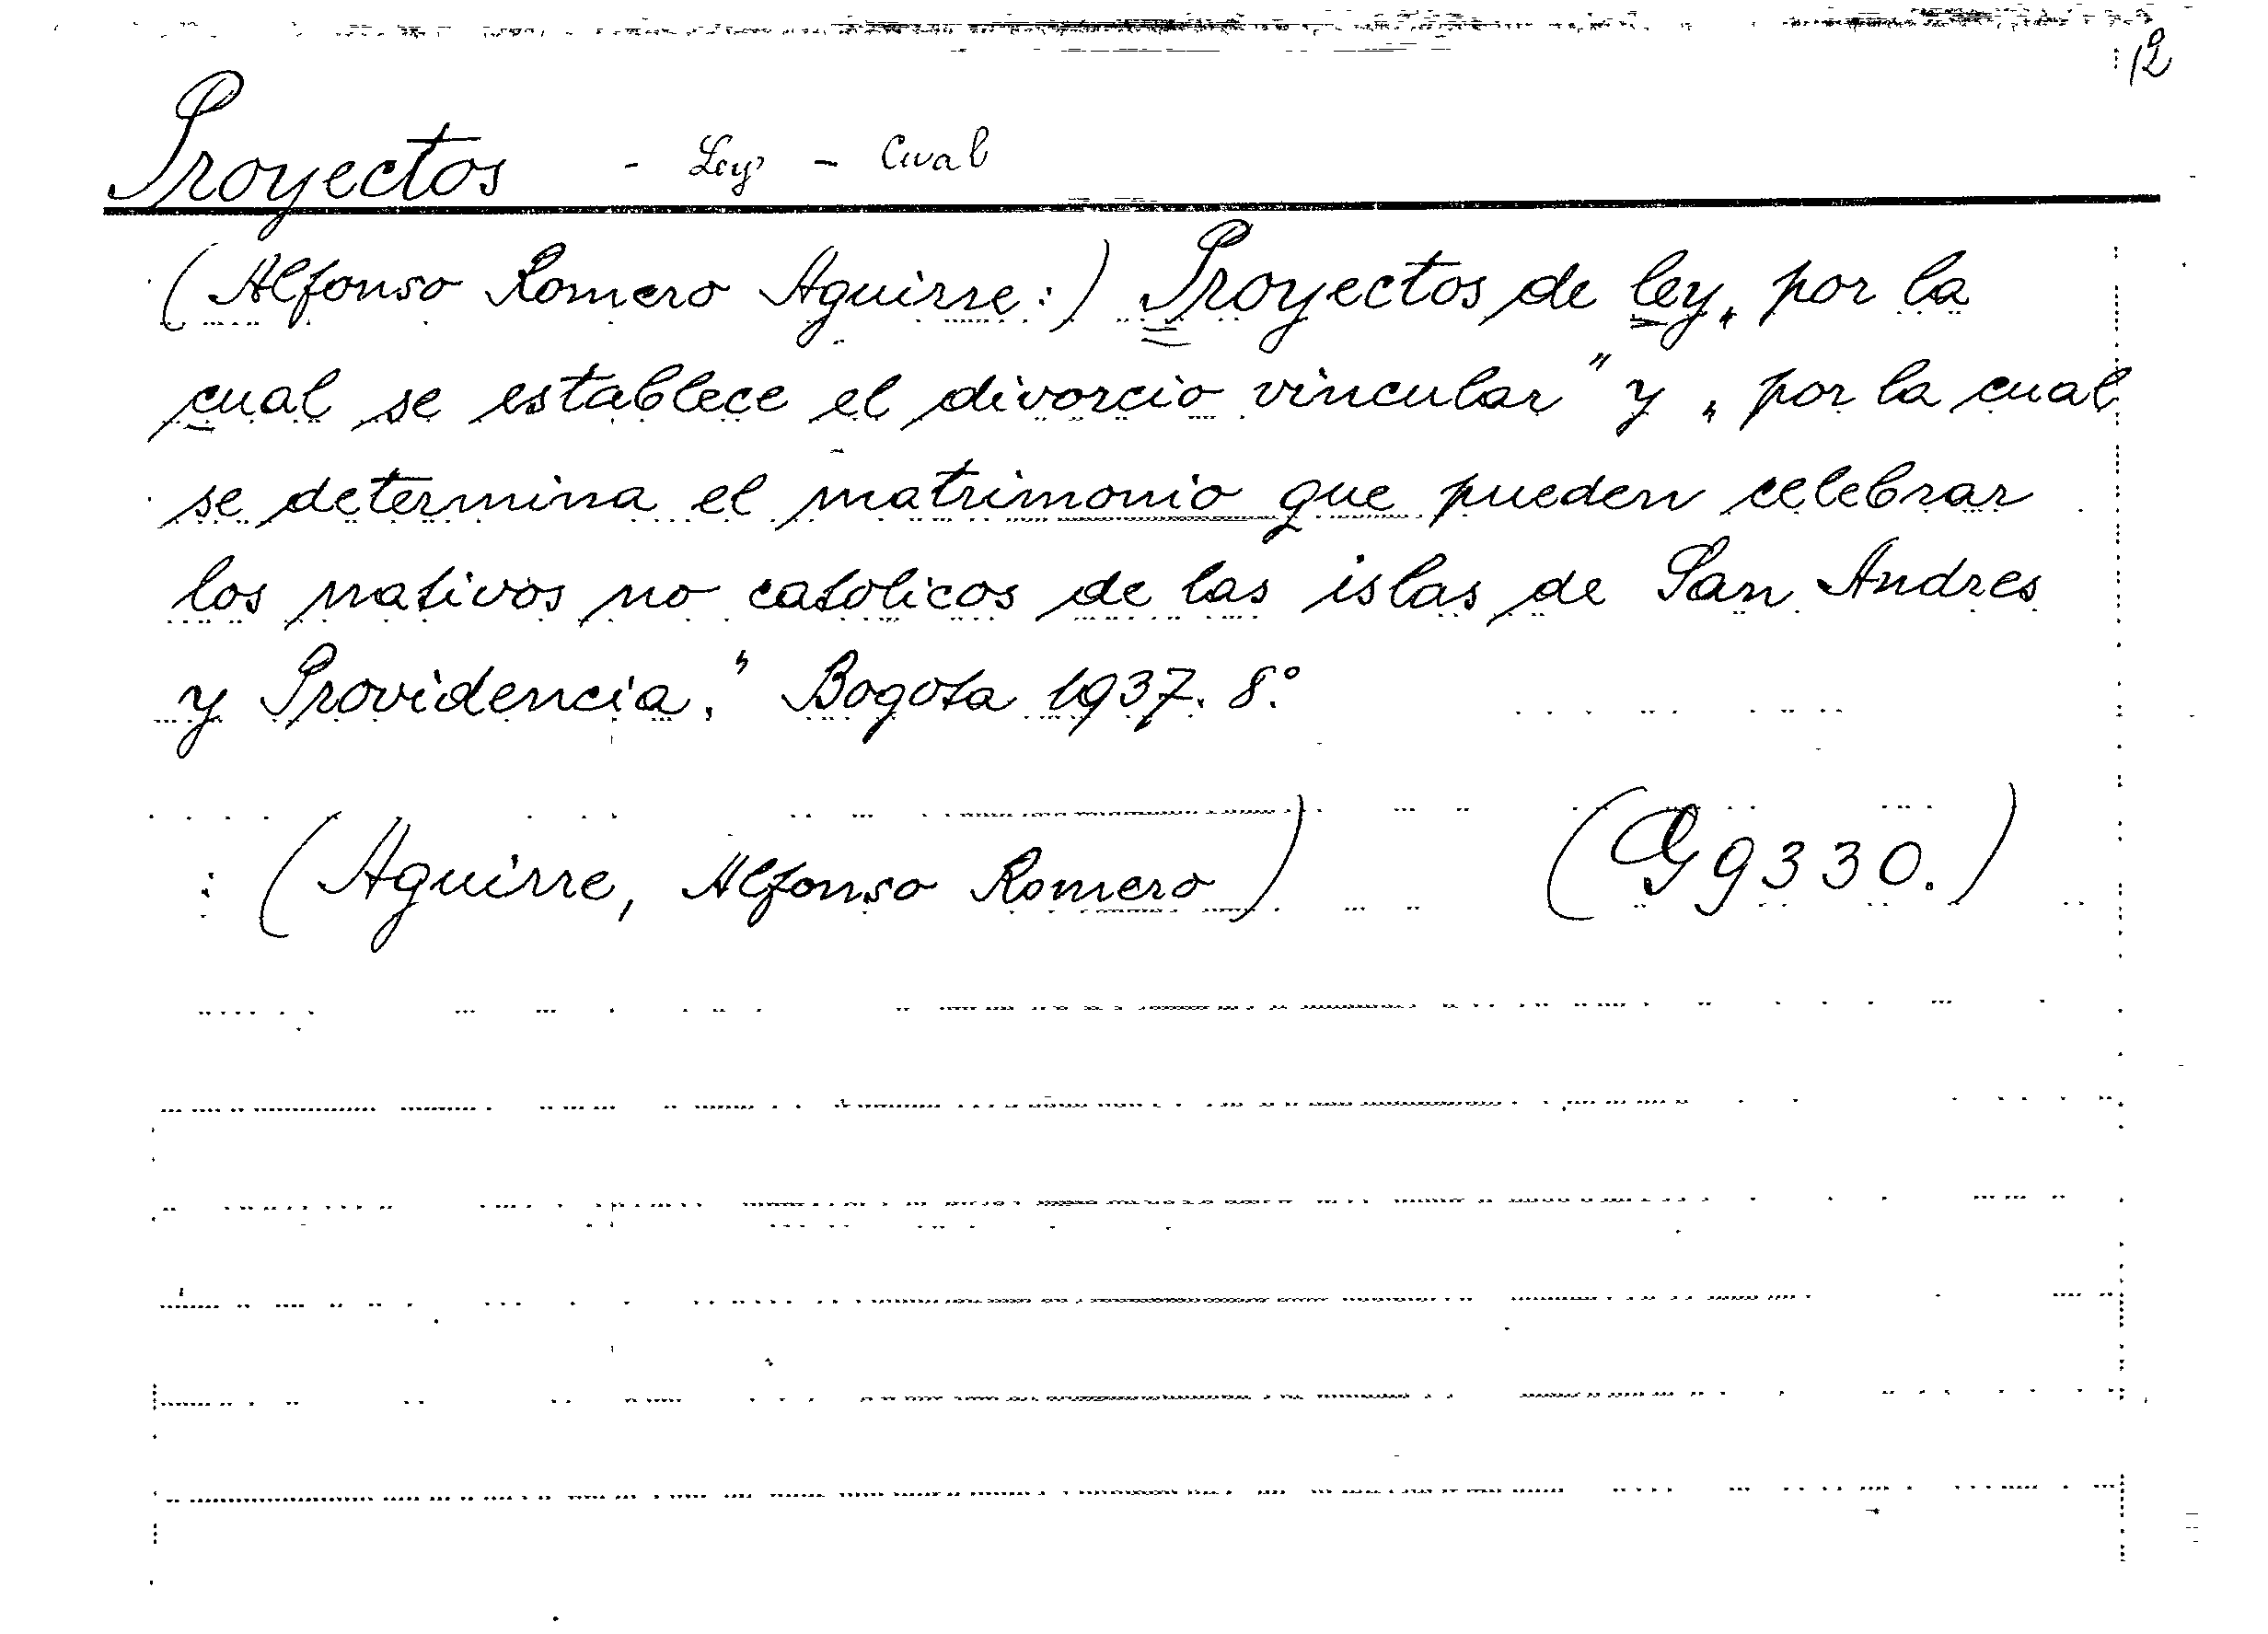 12
Proyectos - Ley - Cual
(Alfonso Romero Aguirre:) Proyectos de ley „por la
cual se establece el divorcio vincular" y „por la cual
se determina el matrimonio que pueden celebrar
los nativos no catolicos de las islas de San Andres
y Providencia." Bogota 1937. 8.°
: (Aguirre, Alfonso Romero) (G 9330.)